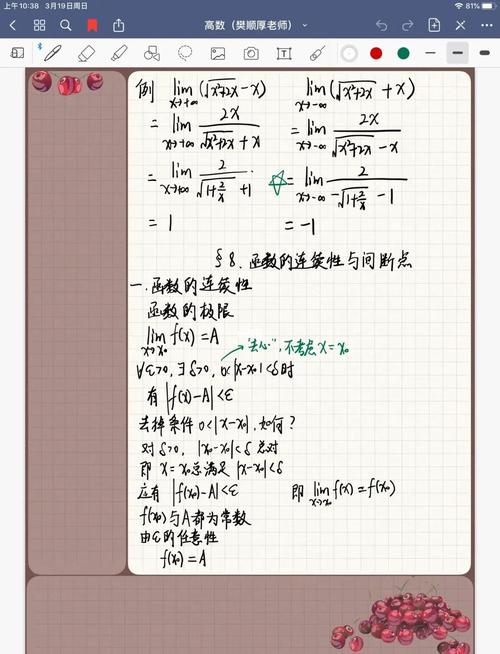 上午10:38 3月19日周日
81%
高数（樊顺厚老师）
例 lim x→+∞ (√x²+2x - x) lim x→-∞ (√x²+2x + x)
= lim x→+∞ 2x / √x²+2x + x = lim x→-∞ 2x / √x²+2x - x
= lim x→+∞ 2 / √1+2/x + 1 ☆= lim x→-∞ 2 / -√1+2/x - 1
= 1 = -1
§8. 函数的连续性与间断点
一.函数的连续性
函数的极限
lim x→x₀ f(x)=A
"去心", 不考虑 x=x₀
∀ε>0, ∃δ>0, 0<|x-x₀|<δ时
有 |f(x)-A|<ε
去掉条件 0<|x-x₀|, 如何?
对 δ>0, |x₀-x₀|<δ 总对
即 x=x₀总满足 |x-x₀|<δ
应有 |f(x₀)-A|<ε 即 lim x→x₀ f(x)=f(x₀)
f(x₀)与A都为常数
由ε的任意性
f(x₀)=A